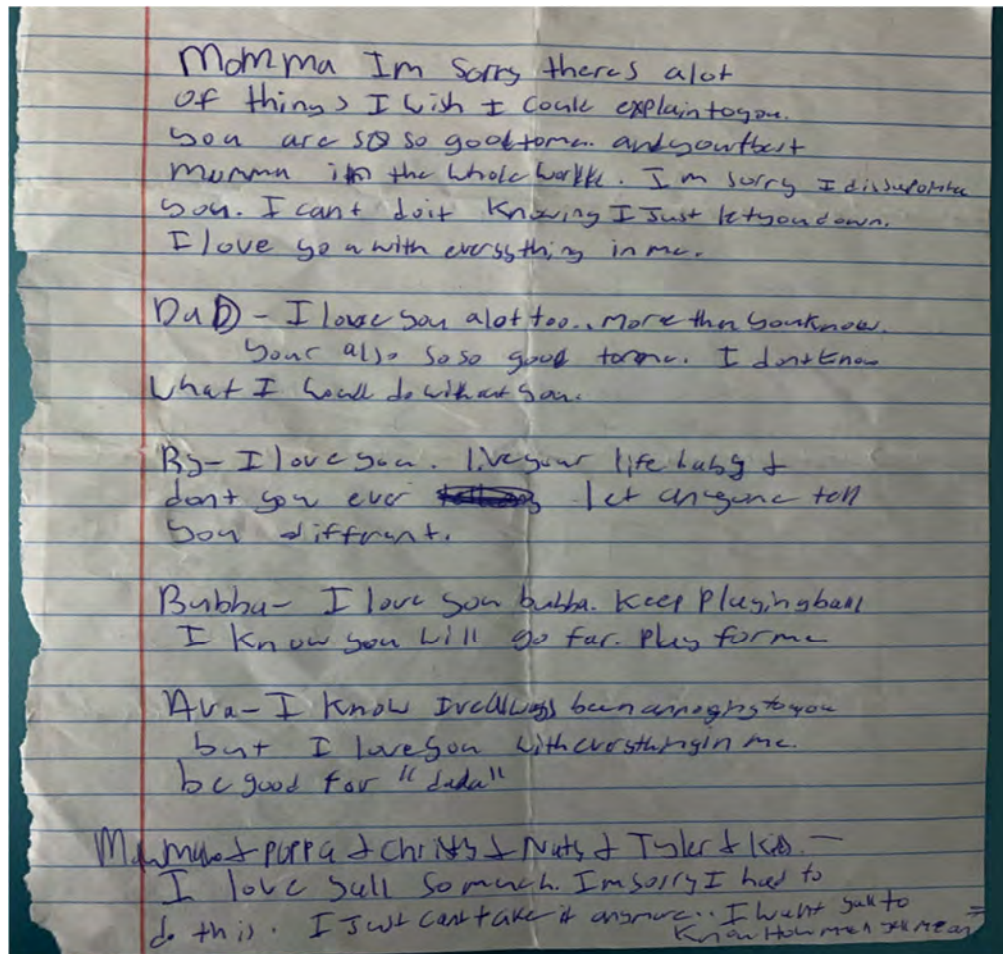 Momma Im Sorry theres alot
of things I wish I could explain to you.
you are so so good to me. and your best
Mumma in the whole . I'm sorry I
you. I cant do it Knowing I Just let you down.
I love you with everything in me.
DaD - I love you alot too.. More then you know.
your also so so good to me. I dont know
What I would do without you.
By- I love you. live your life baby &
dont you ever let anyone tell
you diffrent.
Bubba- I love you bubba. Keep Playing ball
I know you will go far. Play for me
Ava- I know Ive always been annoying to you
but I love you with everything in me.
be good for "dada"
& poppa & & & Tyler & -
I love yall So much. Im sorry I had to
do this. I Just cant take it anymore.. I want yall to
Know How yall mean